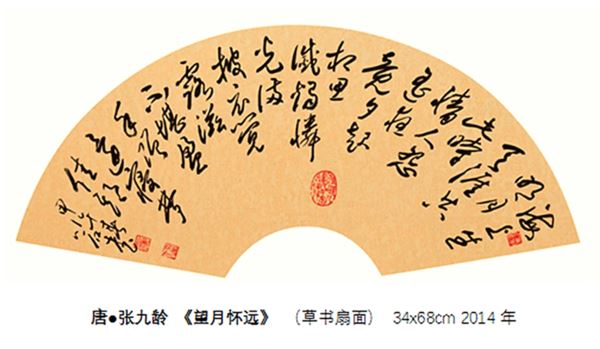 海上生
明月
天涯共
此时
情人怨
遥夜
竟夕起
相思
灭烛怜
光满
披衣觉
露滋
不堪盈
手
还寝梦
佳期
唐●张九龄 《望月怀远》 （草书扇面） 34x68cm 2014 年